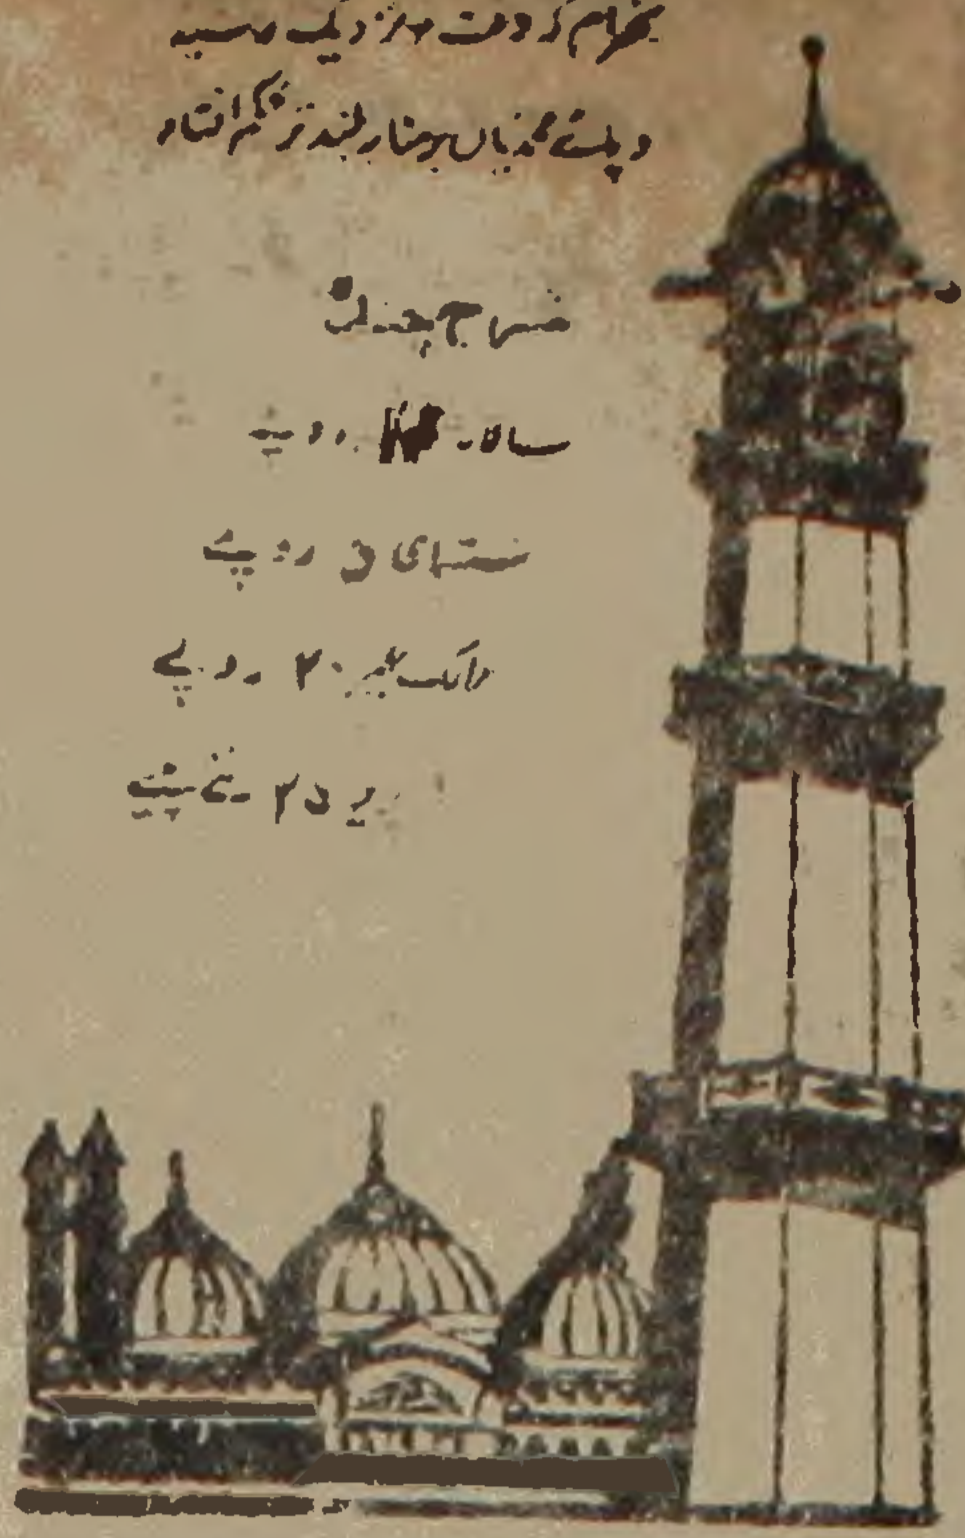 بخرام کہ وقت تو نزدیک رسید
و پائے محمدیاں بر منار بلند تر محکم افتاد
شرح چندہ
سالانہ روپے
ششماہی ۵ روپے
ممالک غیر ۲۰ روپے
۲۵ نئے پیسے